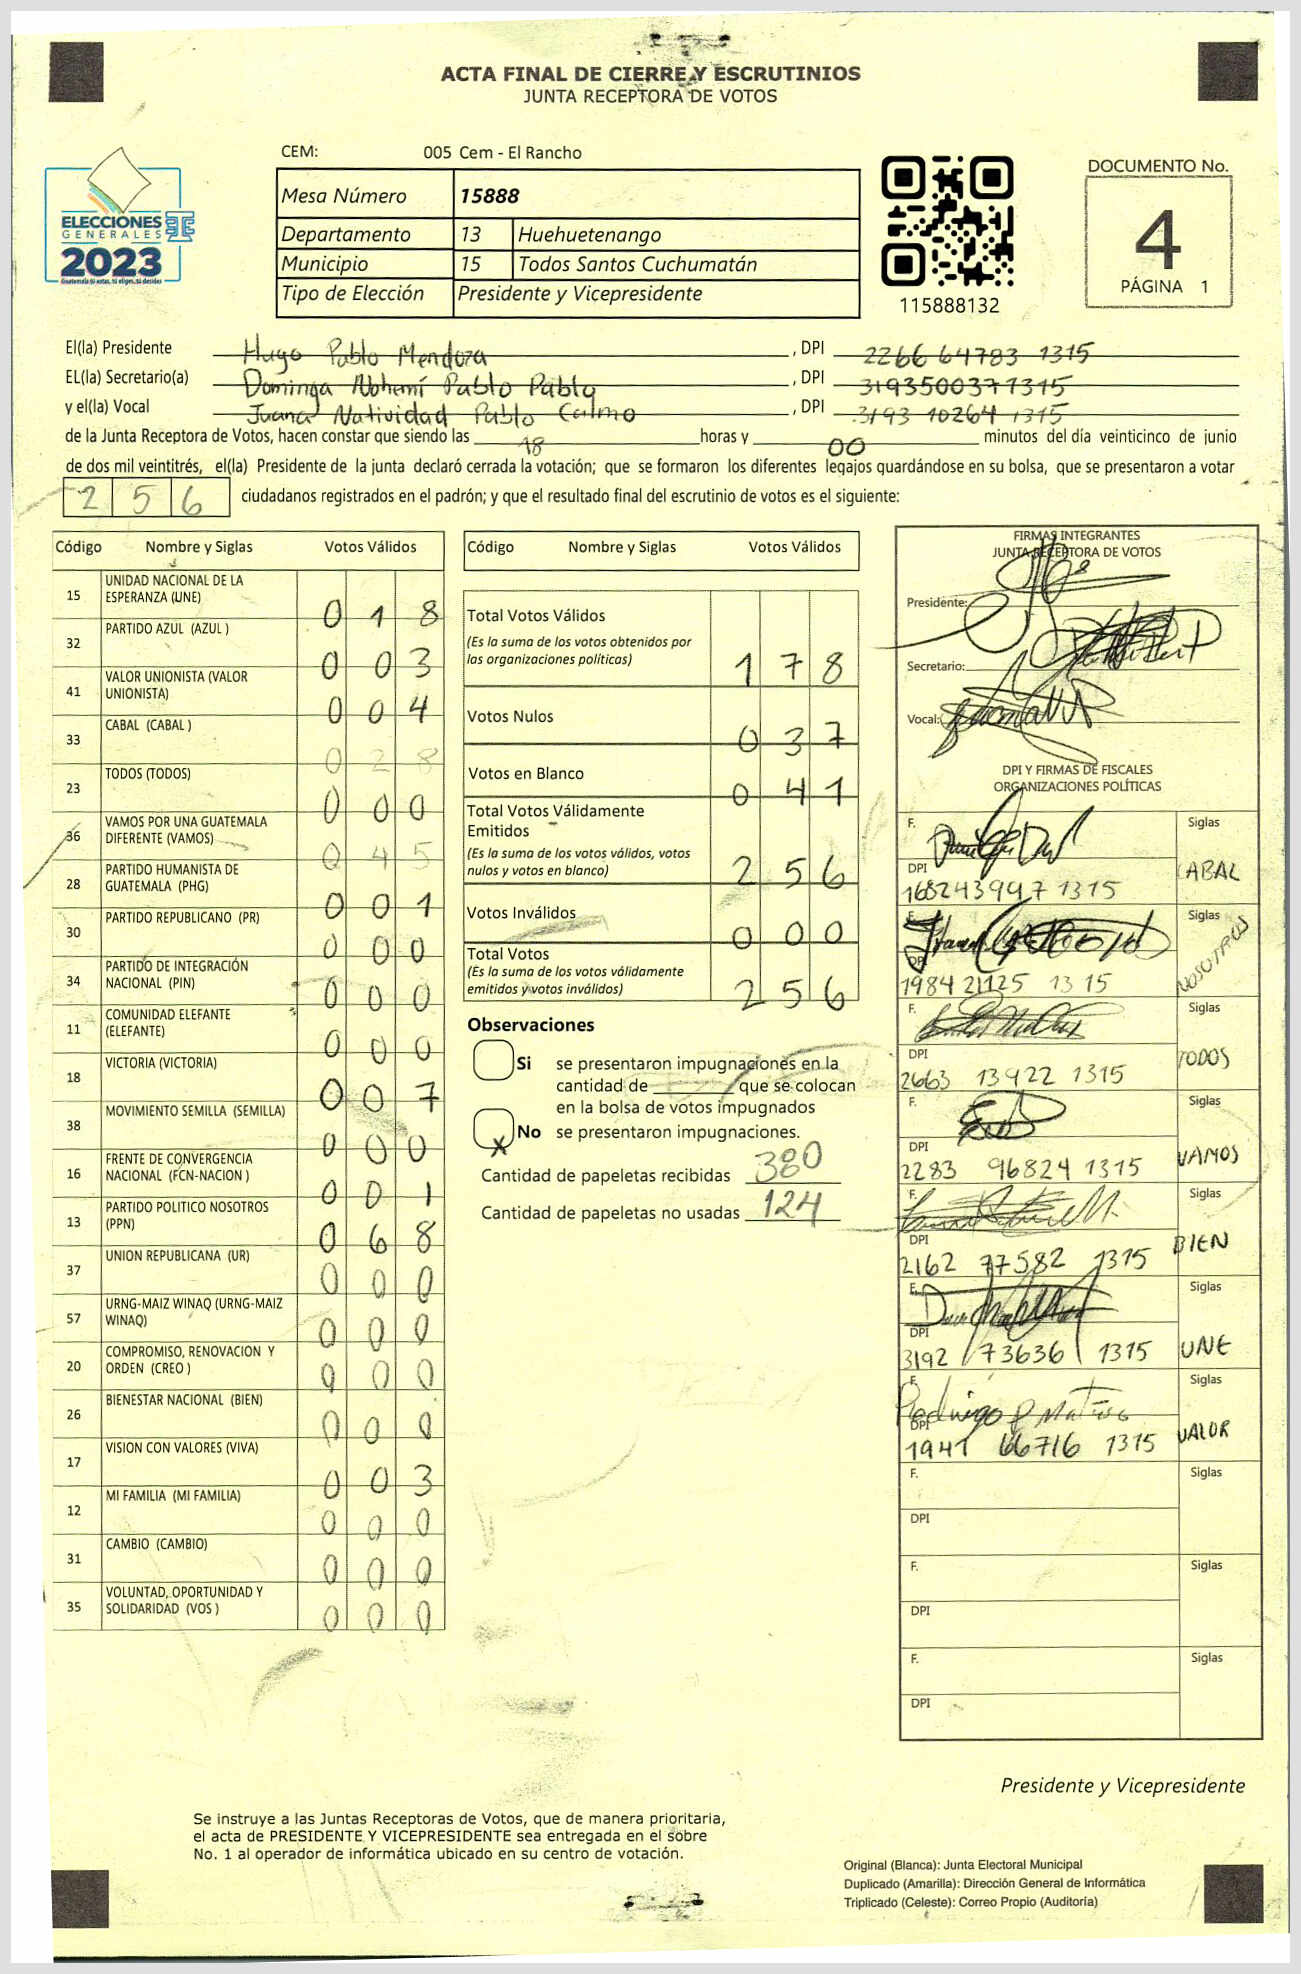 ACTA FINAL DE CIERRE Y ESCRUTINIOS
JUNTA RECEPTORA DE VOTOS
CEM: 005 Cem - El Rancho
Mesa Número 15888
Departamento 13 Huehuetenango
Municipio 15 Todos Santos Cuchumatán
Tipo de Elección Presidente y Vicepresidente
ELECCIONES
GENERALES
2023
Guatemala tú votas, tú eliges, tú decides
TSE
115888132
DOCUMENTO No.
4
PÁGINA 1
El(la) Presidente Hugo Pablo Mendoza, DPI 2266 64783 1315
EL(la) Secretario(a) Dominga Nohemí Pablo Pablo, DPI 3193500371315
y el(la) Vocal Juana Natividad Pablo Calmo, DPI 3193 10264 1315
de la Junta Receptora de Votos, hacen constar que siendo las 18 horas y 00 minutos del día veinticinco de junio
de dos mil veintitrés, el(la) Presidente de la junta declaró cerrada la votación; que se formaron los diferentes legajos guardándose en su bolsa, que se presentaron a votar
256 ciudadanos registrados en el padrón; y que el resultado final del escrutinio de votos es el siguiente:
Código Nombre y Siglas Votos Válidos
15 UNIDAD NACIONAL DE LA ESPERANZA (UNE) 0 1 8
32 PARTIDO AZUL (AZUL ) 0 0 3
41 VALOR UNIONISTA (VALOR UNIONISTA) 0 0 4
33 CABAL (CABAL ) 0 2 8
23 TODOS (TODOS) 0 0 0
36 VAMOS POR UNA GUATEMALA DIFERENTE (VAMOS) 0 4 5
28 PARTIDO HUMANISTA DE GUATEMALA (PHG) 0 0 1
30 PARTIDO REPUBLICANO (PR) 0 0 0
34 PARTIDO DE INTEGRACIÓN NACIONAL (PIN) 0 0 0
11 COMUNIDAD ELEFANTE (ELEFANTE) 0 0 0
18 VICTORIA (VICTORIA) 0 0 7
38 MOVIMIENTO SEMILLA (SEMILLA) 0 0 0
16 FRENTE DE CONVERGENCIA NACIONAL (FCN-NACION ) 0 0 1
13 PARTIDO POLITICO NOSOTROS (PPN) 0 6 8
37 UNION REPUBLICANA (UR) 0 0 0
57 URNG-MAIZ WINAQ (URNG-MAIZ WINAQ) 0 0 0
20 COMPROMISO, RENOVACION Y ORDEN (CREO ) 0 0 0
26 BIENESTAR NACIONAL (BIEN) 0 0 0
17 VISION CON VALORES (VIVA) 0 0 3
12 MI FAMILIA (MI FAMILIA) 0 0 0
31 CAMBIO (CAMBIO) 0 0 0
35 VOLUNTAD, OPORTUNIDAD Y SOLIDARIDAD (VOS ) 0 0 0
Código Nombre y Siglas Votos Válidos
Total Votos Válidos
(Es la suma de los votos obtenidos por
las organizaciones políticas) 1 7 8
Votos Nulos 0 3 7
Votos en Blanco 0 4 1
Total Votos Válidamente
Emitidos
(Es la suma de los votos válidos, votos
nulos y votos en blanco) 2 5 6
Votos Inválidos 0 0 0
Total Votos
(Es la suma de los votos válidamente
emitidos y votos inválidos) 2 5 6
Observaciones
Si se presentaron impugnaciones en la
cantidad de que se colocan
en la bolsa de votos impugnados
X No se presentaron impugnaciones.
Cantidad de papeletas recibidas 380
Cantidad de papeletas no usadas 124
FIRMAS INTEGRANTES
JUNTA RECEPTORA DE VOTOS
Presidente:
Secretario:
Vocal:
DPI Y FIRMAS DE FISCALES
ORGANIZACIONES POLÍTICAS
F. Siglas
DPI 168243947 1315 CABAL
F. Siglas
DPI 1984 21125 1315 NOSOTROS
F. Siglas
DPI 2663 13922 1315 TODOS
F. Siglas
DPI 2283 96824 1315 VAMOS
F. Siglas
DPI 2162 77582 1315 BIEN
F. Siglas
DPI 3192 73636 1315 UNE
F. Siglas
DPI 1941 66716 1315 VALOR
F. Siglas
DPI
F. Siglas
DPI
F. Siglas
DPI
Presidente y Vicepresidente
Se instruye a las Juntas Receptoras de Votos, que de manera prioritaria,
el acta de PRESIDENTE Y VICEPRESIDENTE sea entregada en el sobre
No. 1 al operador de informática ubicado en su centro de votación.
Original (Blanca): Junta Electoral Municipal
Duplicado (Amarilla): Dirección General de Informática
Triplicado (Celeste): Correo Propio (Auditoría)